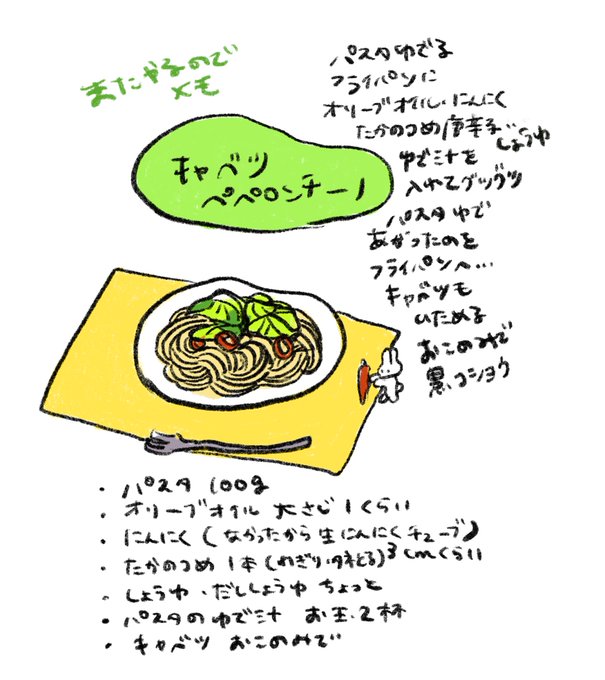 またやるので
メモ
キャベツ
ペペロンチーノ
パスタゆでる
フライパンに
オリーブオイル・にんにく
たかのつめ唐辛子
しょうゆ
ゆで汁を
入れてグツグツ
パスタゆで
あがったのを
フライパンへ…
キャベツも
いためる
おこのみで
黒コショウ
・パスタ 100g
・オリーブオイル 大さじ1くらい
・にんにく (なかったから生にんにくチューブ)
・たかのつめ 1本 (わぎり・タネとる) 3cmくらい
・しょうゆ・だししょうゆ ちょっと
・パスタのゆで汁 お玉2杯
・キャベツ おこのみで